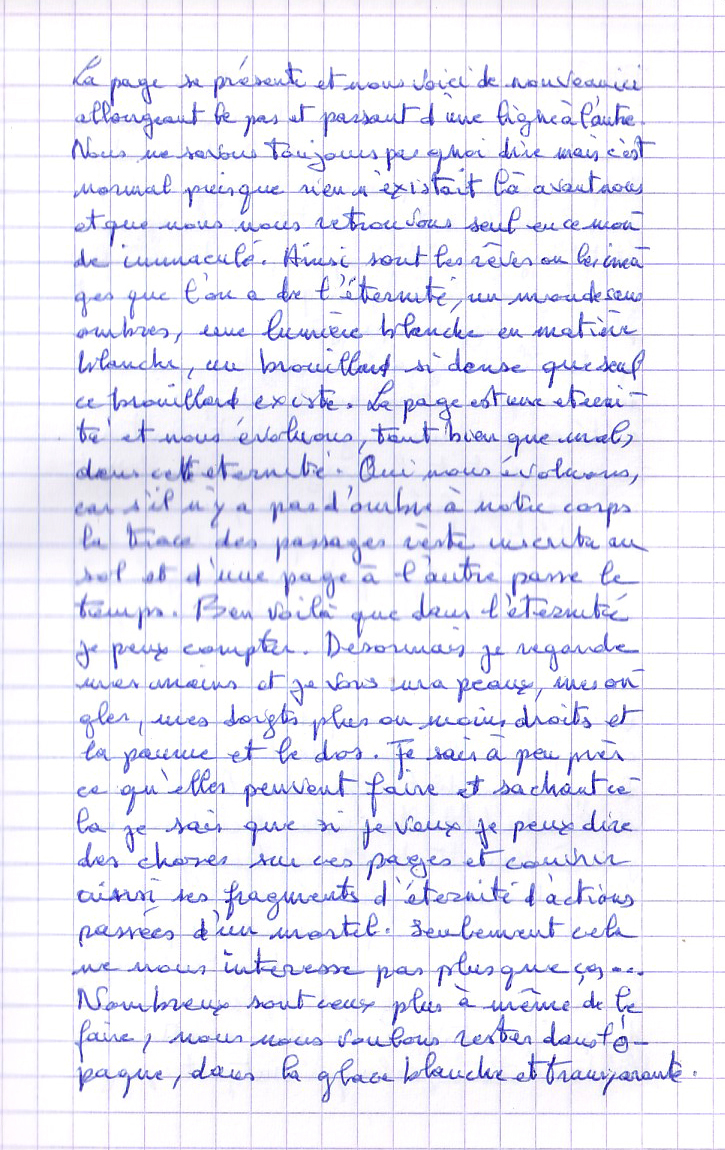 La page se présente et nous voici de nouveau ici
allongeant le pas et passant d'une ligne à l'autre.
Nous ne savons toujours pas quoi dire mais c'est
normal puisque rien n'existait là avant nous
et que nous nous retrouvons seul en ce mon-
de immaculé. Ainsi sont les rêves ou les ima-
ges que l'on a de l'éternité, un monde sans
ombres, une lumière blanche en matière
blanche, un brouillard si dense que seul
ce brouillard existe. La page est une éterni-
té et nous évoluons, tant bien que mal,
dans cette eternité. Oui nous évoluons,
car s'il n'y a pas d'ombre à notre corps
la trace des passages reste inscrite au
sol et d'une page à l'autre passe le
temps. Ben voilà que dans l'éternité
je peux compter. Désormais je regarde
mes mains et je vois ma peaux, mes on-
gles, mes doigts plus ou moins droits et
la paume et le dos. Je sais à peu près
ce qu'elles peuvent faire et sachant ce-
la je sais que si je veux je peux dire
des choses sur ces pages et couvrir
ainsi ses fragments d'éternité d'actions
passées d'un mortel. Seulement cela
ne nous intéresse pas plus que ça...
Nombreux sont ceux plus à même de le
faire, nous nous voulons rester dans l'o-
paque, dans la glace blanche et transparente.